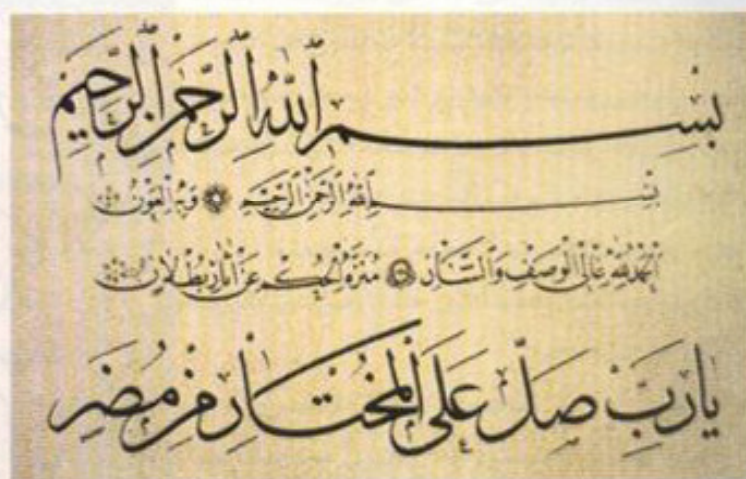 بِسْمِ ٱللَّهِ ٱلرَّحْمَٰنِ ٱلرَّحِيمِ
بِسْمِ ٱللَّهِ ٱلرَّحْمَٰنِ ٱلرَّحِيمِ وَبِهِ ٱلْعَوْنُ
ٱلْحَمْدُ لِلَّهِ عَالِي ٱلْوَصْفِ وَٱلشَّانِ مُنَزَّهِ ٱلْحُكْمِ عَنْ آثَارِ بُطْلَانِ
يَا رَبِّ صَلِّ عَلَى ٱلْمُخْتَارِ مِنْ مُضَرِ